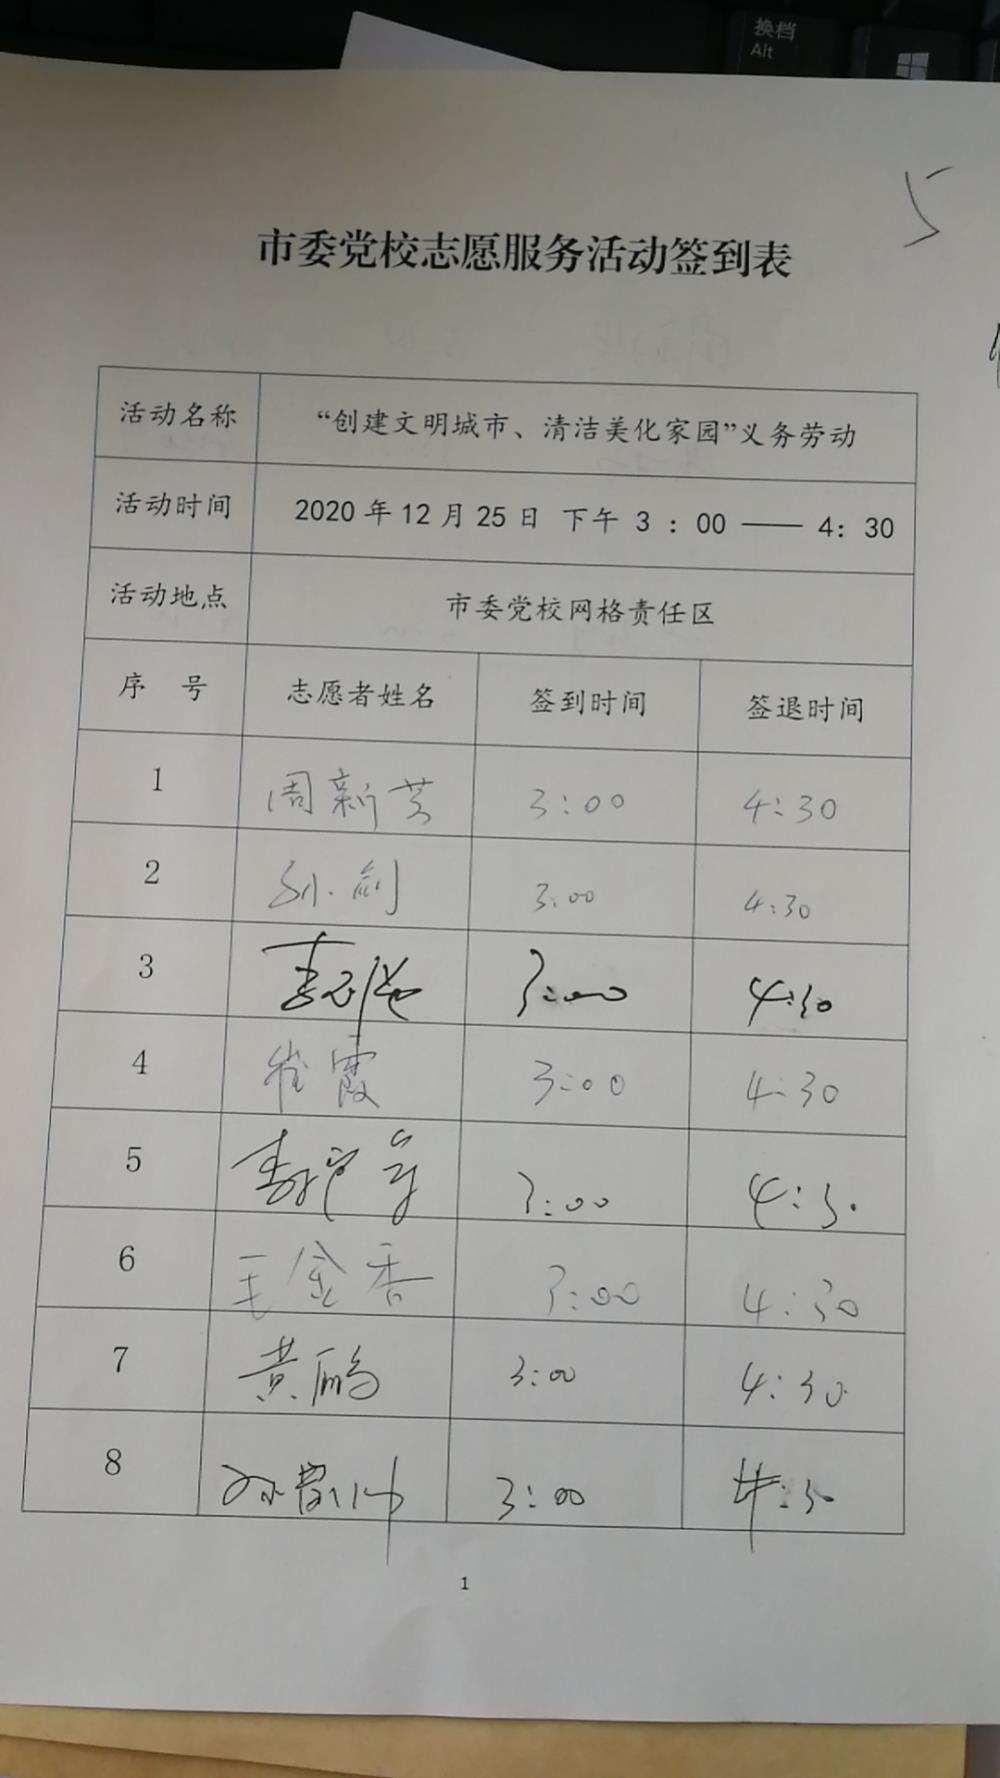 换档
Alt
5
市委党校志愿服务活动签到表
活动名称 “创建文明城市、清洁美化家园”义务劳动
活动时间 2020年12月25日 下午 3 : 00 —— 4: 30
活动地点 市委党校网格责任区
序 号 志愿者姓名 签到时间 签退时间
1 周新芸 3:00 4:30
2 孙剑 3:00 4:30
3 李 3:00 4:30
4 崔霞 3:00 4:30
5 李 3:00 4:30
6 王金香 3:00 4:30
7 黄鹏 3:00 4:30
8 孙 3:00 4:30
1